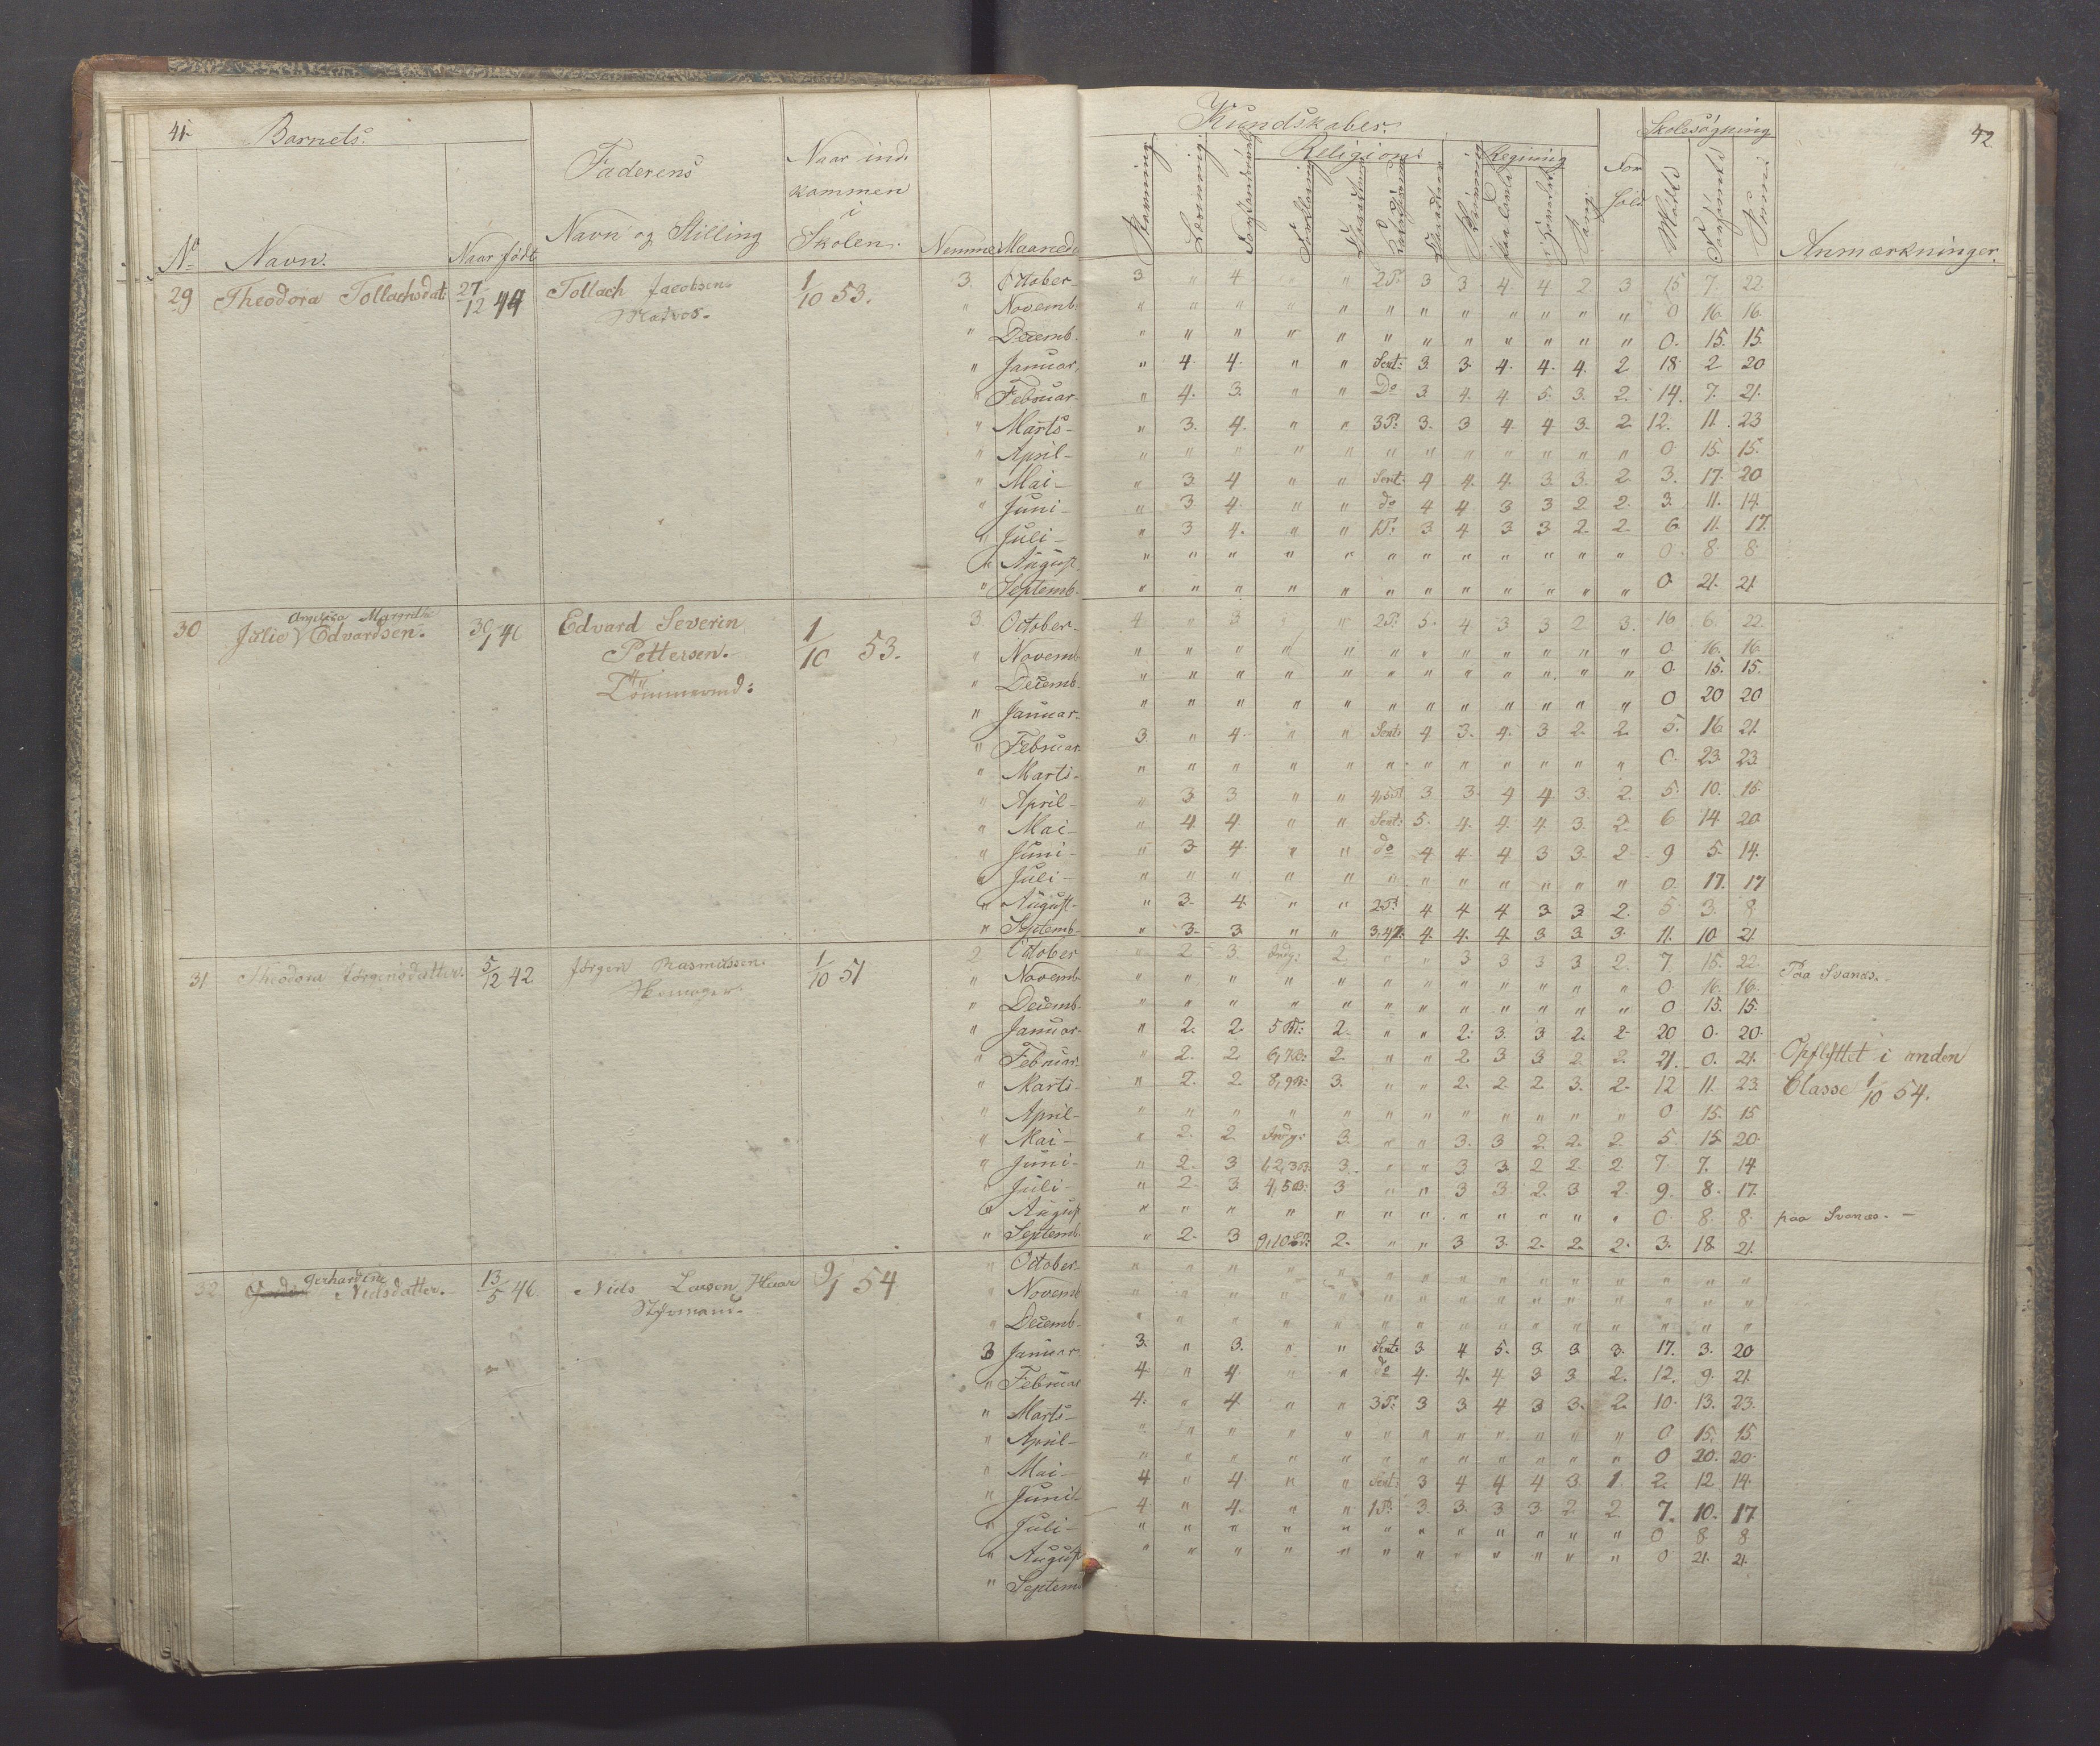 41.
Barnets.
Faderens
Naar ind-
kommen
i
Skolen.
No
Navn.
Naar født
Navn og Stilling
Nemme
Maaned
Kundskaber.
Religion.
Regning
Skolesøgning
42
Stavning
Læsning
Forklaring
Skrivning
paa Tavle
i Hovedet
Sang
For
hold
Mødt
Forsømt
Summa
Anmærkninger.
29 Theodora Tollachsdat: 27/12 44 Tollach Jacobsen 1/10 53. 3. October 3 " 4 " " 2P. 3 3 4 4 2 3 15 7. 22.
Matros.
" Novemb. " " " " " " " " " " " " 0 16. 16.
" Decemb. " " " " " " " " " " " " 0. 15. 15.
" Januar. " 4 4. " " Sent: 3. 3. 4. 4. 4. 2 18 2 20
" Februar. " 4. 3. " " Do 3. 4. 4. 5. 3. 2. 14. 7. 21.
" Marts- " 3. 4. " " 3P: 3. 3 4. 4 3. 2. 12. 11. 23
" April- " " " " " " " " " " " " 0. 15. 15.
" Mai- " 3. 4 " " Sent: 4 4. 4. 3. 3. 2. 3. 17. 20
" Juni- " 3 4. " " do 4 4 3 3 2. 2. 3. 11. 14.
" Juli- " 3 4. " " 1P: 3. 4 3 3 2. 2. 6. 11. 17.
" August. " " " " " " " " " " " " 0. 8. 8.
" Septemb. " " " " " " " " " " " " 0. 21. 21.
Angelica Margrethe
30 Julie Edvardsen. 30/1 46 Edvard Severin 1/10 53. 3. October- 4 " 3 " " 2P. 5. 4. 3 3 2 3. 16 6. 22.
Pettersen.
Tømmermd:
" Novemb " " " " " " " " " " " " 0. 16. 16.
" Decemb. " " " " " " " " " " " " 0 15. 15.
" Januar- " " " " " " " " " " " " 0 20 20
" Februar 3. " 4. " " Sent: 4 3. 4. 3 2. 2. 5. 16. 21.
" Marts- " " " " " " " " " " " " 0. 23. 23.
" April- " 3 3 " " 3 3. 4 4. 3. 2. 5. 10. 15.
" Mai- " 4. 4. " " Sent: 5. 4. 4. 4. 3. 2. 6. 14 20
" Juni- " 3. 4. " " do 4 4. 4 3 3. 2. 9 5. 14.
" Juli- " " " " " " " " " " " " 0. 17. 17
" August- " 3. 4. " " 2P. 4 4 4 3. 3. 2. 5 3. 8
" Septemb- " 3. 3. " " 3,4P. 4. 4. 4. 3. 3. 3. 11. 10 21.
31 Theodora Jørgensdatter. 5/12 42 Jørgen Rasmussen. 1/10 51 2 October " 2 3. Indg: 2. " " 3 3 3 3 2. 7 15. 22. Paa Svanæs.
" Novemb. " " " " " " " " " " " " 0. 16. 16.
" Decemb. " " " " " " " " " " " " 0 15. 15.
" Januar. " 2. 2. 2. " " 2. 3. 3 2. 2. 20 0. 20.
" Februar. " 2. 2. 2. " " 2. 3 3. 2 2. 21. 0. 21. Opflyttet i anden
" Marts- " 2. 2. 3. " " 2. 2. 2. 3. 2. 12 11. 23. Classe 1/10 54.
" April- " " " " " " " " " " " " 0. 15. 15
" Mai- " 2. 2 Indg: 3. " " 3. 3 2. 2. 2. 5. 15. 20.
" Juni- " 2. 3 3. " " 3 3. 2 2. 2. 7. 7. 14
" Juli- " 2. 3. 3 " " 3 3. 2. 3 2. 9. 8. 17.
" August " " " " " " " " " " " " 0. 8. 8. paa Svanæs.-
" Septemb. " 2. 3 2. " " 3 3. 2. 2. 2. 3. 18. 21.
Gerhardine
32 Nielsdatter. 13/5 46. Niels Larsen 9/1 54 " October- " " " " " " " " " " " " " " "
Styrmand.
" Novemb " " " " " " " " " " " " " " "
" Decemb. " " " " " " " " " " " " " " "
3 Januar. 3. " 3. " " Sent: 3 4 5. 3. 3 3. 17. 3. 20
" Februar 4. " 4 " " do 4. 4. 4 3 3. 2. 12. 9. 21.
" Marts- 4. " 4 " " 3P: 3 3. 4 3 3. 2. 10. 13. 23.
" April- " " " " " " " " " " " " 0 15. 15
" Mai- " " " " " " " " " " " " 0 20. 20.
" Juni 4 " 4 " " Sent: 3 4 4 4 3 1 2. 12. 14.
" Juli- 4 " 4. " " 1P: 3. 3. 3. 3. 2. 2. 7. 10. 17
" August " " " " " " " " " " " " 0 8 8
" Septemb " " " " " " " " " " " " 0 21. 21.